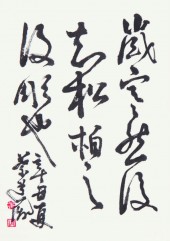 歲寒然後
知松柏之
後彫也
辛丑夏